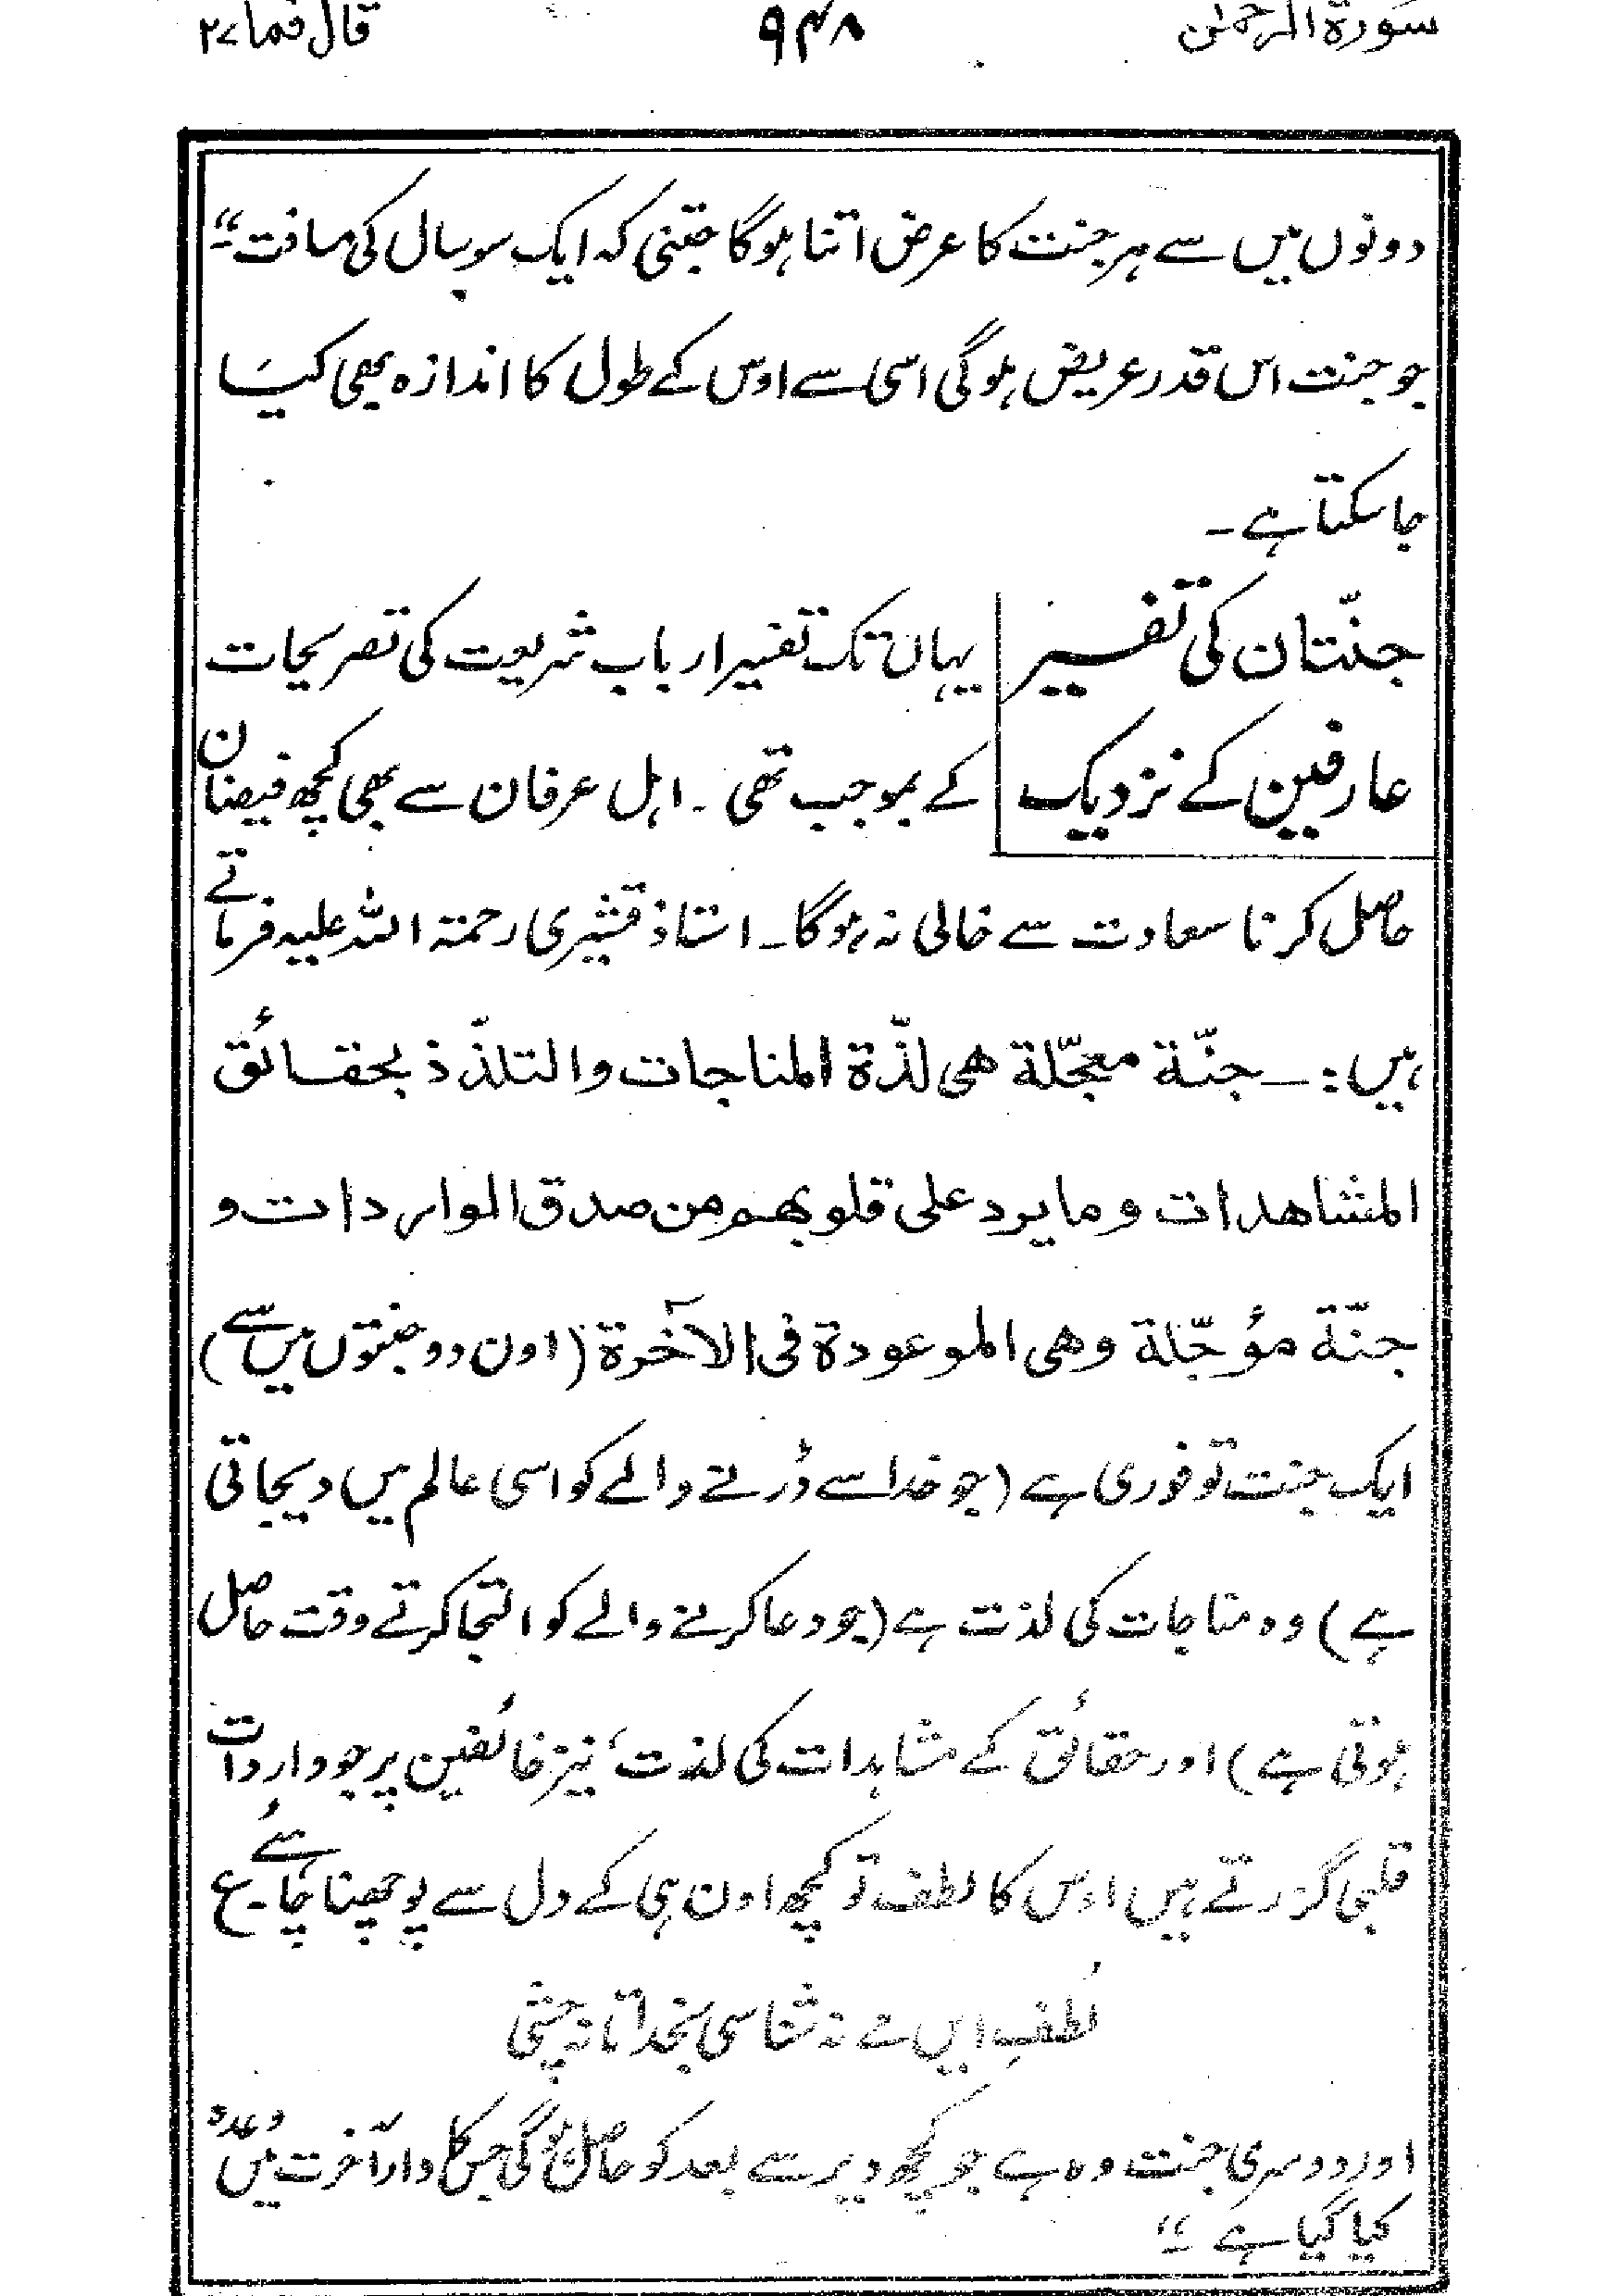 سورۃ الرحمٰن ۹۴۸ قال فما ۲۷
دونوں میں سے ہر جنت کا عرض اتنا ہوگا جتنی کہ ایک سو سال کی مسافت"۔
جو جنت اس قدر عریض ہوگی اسی سے اوس کے طول کا اندازہ بھی کیا
جا سکتا ہے ۔
جنّتان کی تفسیر
عارفین کے نزدیک
یہاں تک تفسیر ارباب شریعت کی تصریحات
کے بموجب تھی ۔ اہل عرفان سے بھی کچھ فیضان
حاصل کرنا سعادت سے خالی نہ ہوگا ۔ استاذ قشیری رحمۃ اللہ علیہ فرماتے
ہیں :۔ جنّة معجّلة هی لذّة المناجات والتلذّذ بحقائق
المشاهدات وما يرد علی قلوبهم من صدق الواردات و
جنّة مؤجّلة وهی الموعودة فی الآخرة (اون دو جنتوں میں سے)
ایک جنت تو فوری ہے (جو خدا سے ڈرنے والے کو اسی عالم میں دیجاتی
ہے) وہ مناجات کی لذت ہے (جو دعا کرنے والے کو التجا کرتے وقت حاصل
ہوتی ہے) اور حقائق کے مشاہدات کی لذت، نیز خائفین پر جو واردات
قلبی گزرتے ہیں اوس کا لطف تو کچھ اون ہی کے دل سے پوچھنا چاہئے ۔ ع
لُطفِ ایں مے نہ شناسی بخدا تا نہ چشی
اور دوسری جنت وہ ہے جو کچھ دیر سے بعد کو حاصل ہوگی جس کا دار آخرت میں وعدہ
کیا گیا ہے "